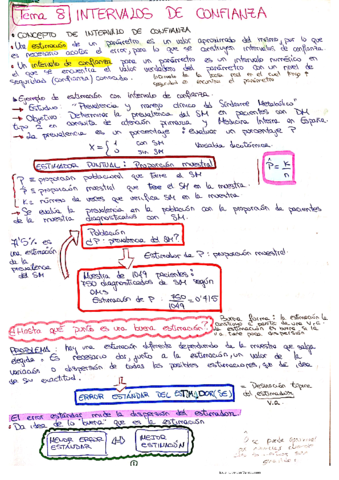 Tema 8 INTERVALOS DE CONFIANZA
• CONCEPTO DE INTERVALO DE CONFIANZA
- Una estimación de un parámetro es un valor aproximado del mismo, por lo que
es necesario acotar el error; para lo que se construyen intervalos de confianza.
- Un intervalo de confianza para un parámetro es un intervalo numérico en
el que se encuentra el valor verdadero del parámetro con un nivel de
seguridad (confianza) conocido.
se encuentra el parámetro
• Ejemplo de estimación con intervalo de confianza
- Estudio "Prevalencia y manejo clínico del Síndrome Metabólico"
- Objetivo Determinar la prevalencia del SM en pacientes con DM
tipo 2 en consulta de atención primaria y Medicina Interna en España.
- La prevalencia es un porcentaje: Evaluar un porcentaje P
X = { 1 con SM
0 sin SM
Variable dicotómica
ESTIMADOR PUNTUAL: Proporción muestral
P̂ = k/n
P = proporción poblacional que tiene el SM
P̂ = proporción muestral que tiene el SM en la muestra.
k = número de veces que se verifica SM en la muestra.
- Se evalúa la prevalencia en la población con la proporción de pacientes
de la muestra diagnosticados con SM.
71'5% es
una estimación
de la
prevalencia
del SM
Población
¿P: prevalencia del SM?
Estimador de P: proporción muestral
Muestra de 1049 pacientes:
750 diagnosticados de SM según
OMS
Estimación de P: 750/1049 = 0'715
¿Hasta qué punto es una buena estimación?
Buena forma: la estimación la
PROBLEMA: hay una estimación diferente dependiendo de la muestra que salga
elegida. Es necesario dar, junto a la estimación, un valor de la
variación o dispersión de todas las posibles estimaciones, que dé idea
de su exactitud.
ERROR ESTÁNDAR DEL ESTIMADOR (SE) = Desviación típica
del estimador
V.a.
El error estándar mide la dispersión del estimador.
- Da idea de lo "buena" que es la estimación
MENOR ERROR
ESTÁNDAR
MEJOR
ESTIMACIÓN
(1)